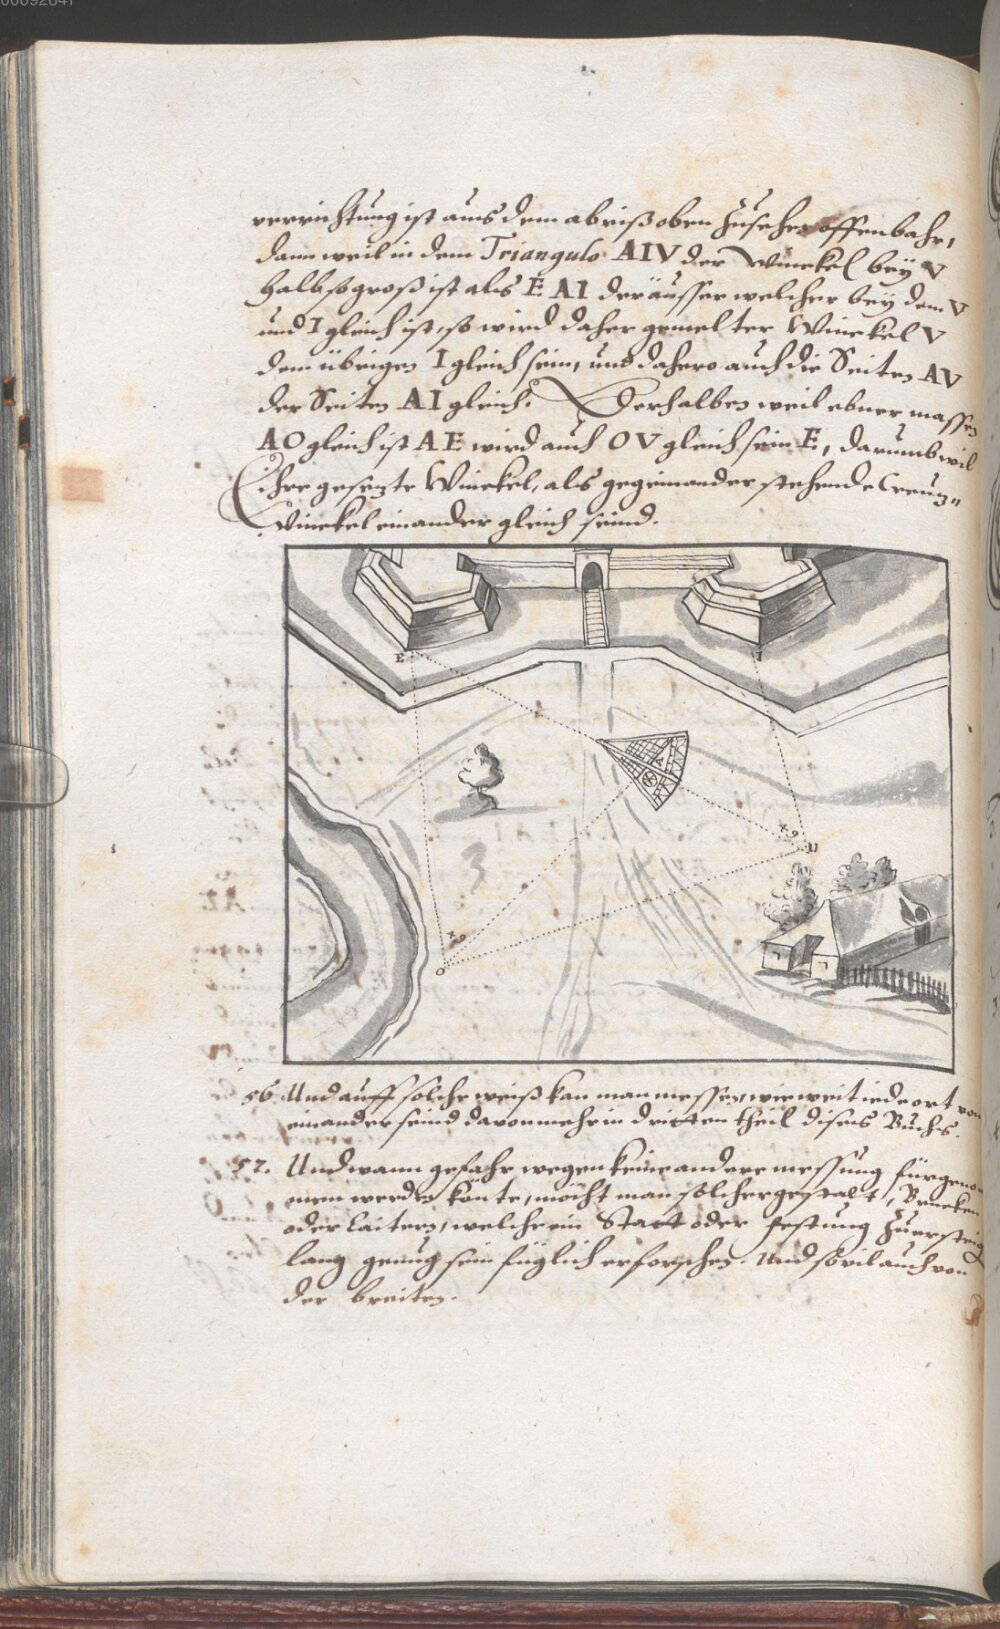 00092841
verrichtung ist auß dem abriß oben zusehen offenbahr,
dann weil in dem Triangulo AIV der Winckel bey V
halb so groß ist als EAI der äusser welcher bey dem V
und I gleich ist, so wird daher gemelter Winckel V
dem übrigen I gleich sein, und dahero auch die Seiten AV
der Seiten AI gleich. Derhalben weil ebner massen
AO gleich ist AE wird auch OV gleich sein E, darumb wil
ihre gesezte Winckel, als gegeinander stehende Creuz„
Winckel einander gleich seind.
E
I
A
x 9
U
x 9
O
56 Und auff solche weiß kan man messen, wie weit iede ort von
einander seind davon mehr in dritten theil dises Buchs.
57. Und wann gefahr wegen keine andere messung fürgenom
men werden könte, möcht man solcher gestalt, Brucken
oder Laitern, welche ein Statt oder Festung zuersteig
lang genug sein füglich erforschen. Und sovil auch von
der breiten.